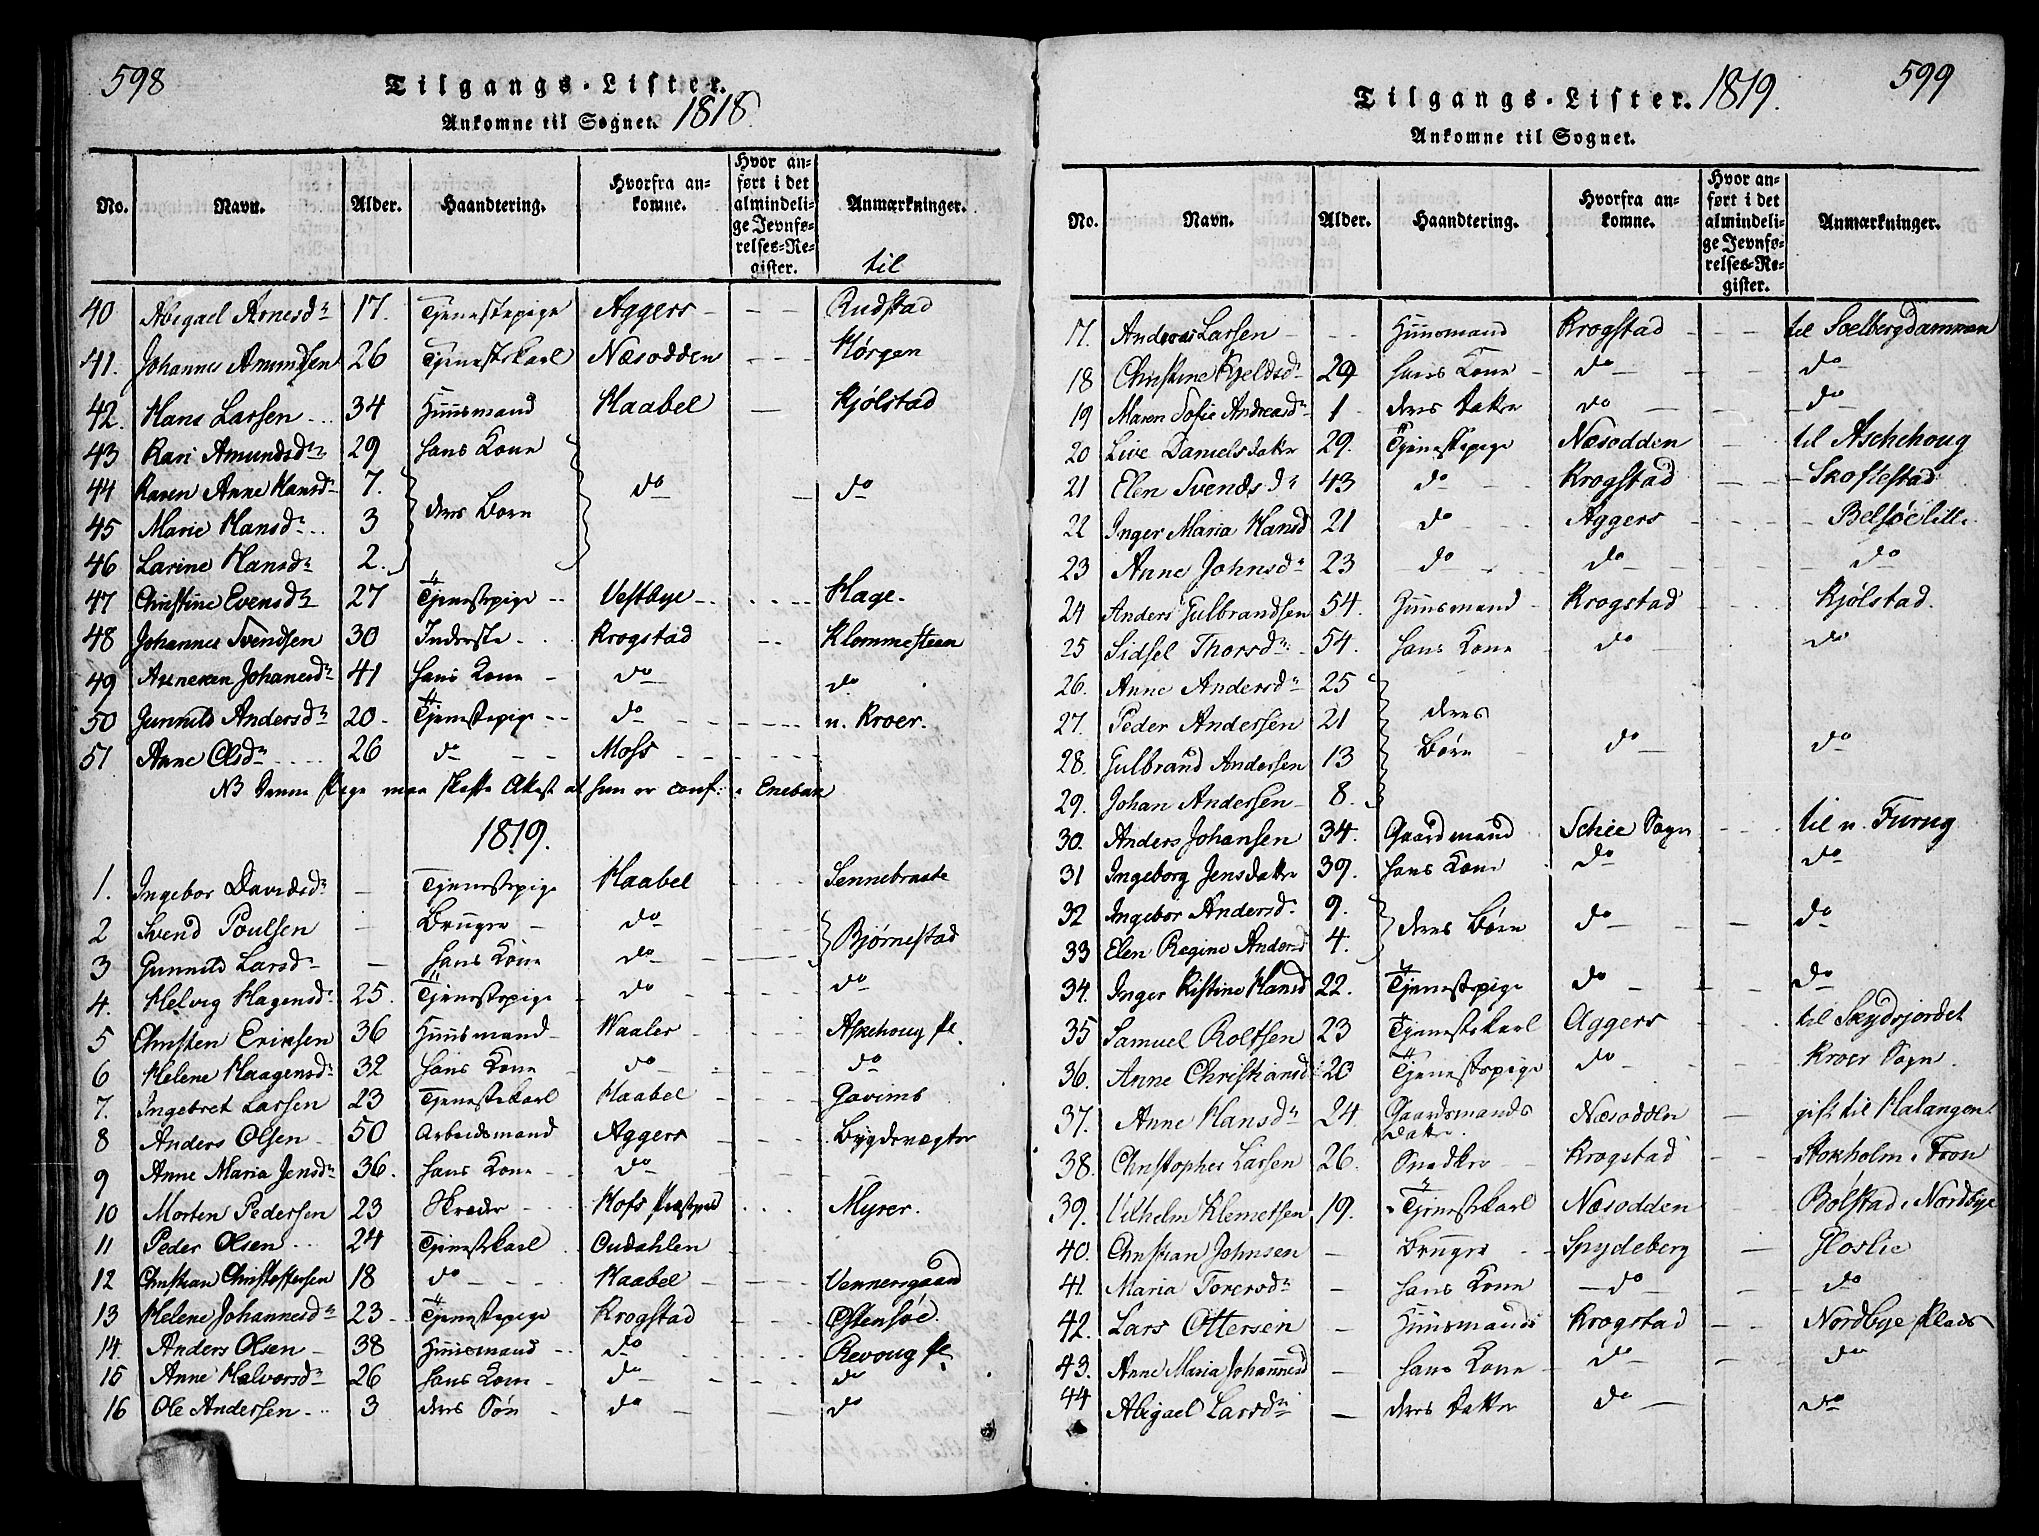 598
Tilgangs-Lister.
Ankomne til Sognet. 1818.
No. Navn. Alder. Haandtering. Hvorfra ankomne. Hvor anført i det almindelige Jevnførelses-Register. Anmærkninger.
til
40 Abigael Arnesdr 17. Tjenestepige Aggers - - - Rudstad
41. Johannes Amundsen 26 Tjenestekarl Næsodden - - - Kørgen
42. Hans Larsen 34 Huusmand Haabel — Kjølstad
43 Kari Amundsdr 29 hans Kone
44 Karen Anne Hansdr 7. do — do
45 Marie Hansdr 3 deres Børn
46 Larine Hansdr 2.
47 Christine Evensdr 27 Tjenestepige Vestbye Hage.
48 Johannes Svendsen 30 Inderste Krogstad Klommesteen
49 Johanesdr 41 hans Kone do do
50 Gunnild Andersdr 20 Tjenestepige do n. Kroer.
51 Anne Olsdr 26 do Moss
NB Denne Pige maa skaffe Attest at hun er conf: i Enebak
1819.
1. Ingebor Davidsdr — Tjenestepige Haabel
2 Svend Poulsen — Bruger do
Bjørnestad
3 Gunnild Larsdr — hans Kone do
4. Helvig Hagensdr 25. Tjenestepige do do
5 Christen Eriksen 36 Huusmand Waaler Askehoug
6 Helene Haagensdr 32 hans Kone do do
7. Ingebret Larsen 23 Tjenestekarl Haabel
8 Anders Olsen 50 Arbeidsmand Aggers Bygdevægter
9 Anne Maria Jensdr 36. hans Kone do
10 Morten Pedersen 23 Skræder Hofs Myrer.
11 Peder Olsen 24 Tjenestekarl Oudahlen
12 Christian Christoffersen 18 do Haabel Vennersgaard
13 Helene Johannesdr 23 Tjenestepige Krogstad Østensøe.
14 Anders Olsen 38 Huusmand do Revoug
15 Anne Halvorsdr 26 hans Kone do do
16 Ole Andersen 3 deres Søn do do
599
Tilgangs-Lister. 1819.
Ankomne til Sognet.
No. Navn. Alder. Haandtering. Hvorfra ankomne. Hvor anført i det almindelige Jevnførelses-Register. Anmærkninger.
17. Andreas Larsen Huusmand Krogstad til Soelbergdammen
18 Christine Kjeldsdr 29 hans Kone do do
19 Maren Sofie Andreasdr 1 deres Datter do do
20 Live Danielsdatter 29. Tjenestepige Næsodden til Aschehoug
21 Elen Svendsdr 43 do Krogstad Skoftestad
22 Inger Maria Hansd 21 do Aggers
23 Anne Johnsdr 23 do do do
24 Anders Gulbrandsen 54. Huusmand Krogstad Kjølstad.
25 Sidsel Thorsdr 54. hans Kone do do
26. Anne Andersdr 25
27. Peder Andersen 21 deres
28. Gulbrand Andersen 13 Børn do do
29. Johan Andersen 8.
30. Anders Johansen 34. Gaardmand Schee Sogn til n. Furug
31 Ingeborg Jensdatter 39. hans Kone do do
32 Ingebor Andersdr 9. deres Børn do — do
33 Elen Regine Andersd 4.
34. Inger Kistine Hansd 22. Tjenestepige do do
35 Samuel Rolfsen 23 Tjenestekarl Aggers til Skydsjordet
36. Anne Christiansd 20 Tjenestepige do Kroer Sogn
37. Anne Hansdr 24. Gaardsmands Datter Næsodden — gift til Halangen
38. Christopher Larsen 26. Snedker Krogstad Stokholm i Fron
39. Vilhelm Klemetsen 19. Tjenestekarl Næsodden Bølstad i Nordbye
40. Christian Johnsen — Bruger Spydeberg — Hoslie
41. Maria Torersdr — hans Kone do do
42. Lars Ottersen — Huusmand Krogstad Nordbye Plads
43. Anne Maria Johannesd — hans Kone do do
44 Abigael Larsdr — deres Datter do do